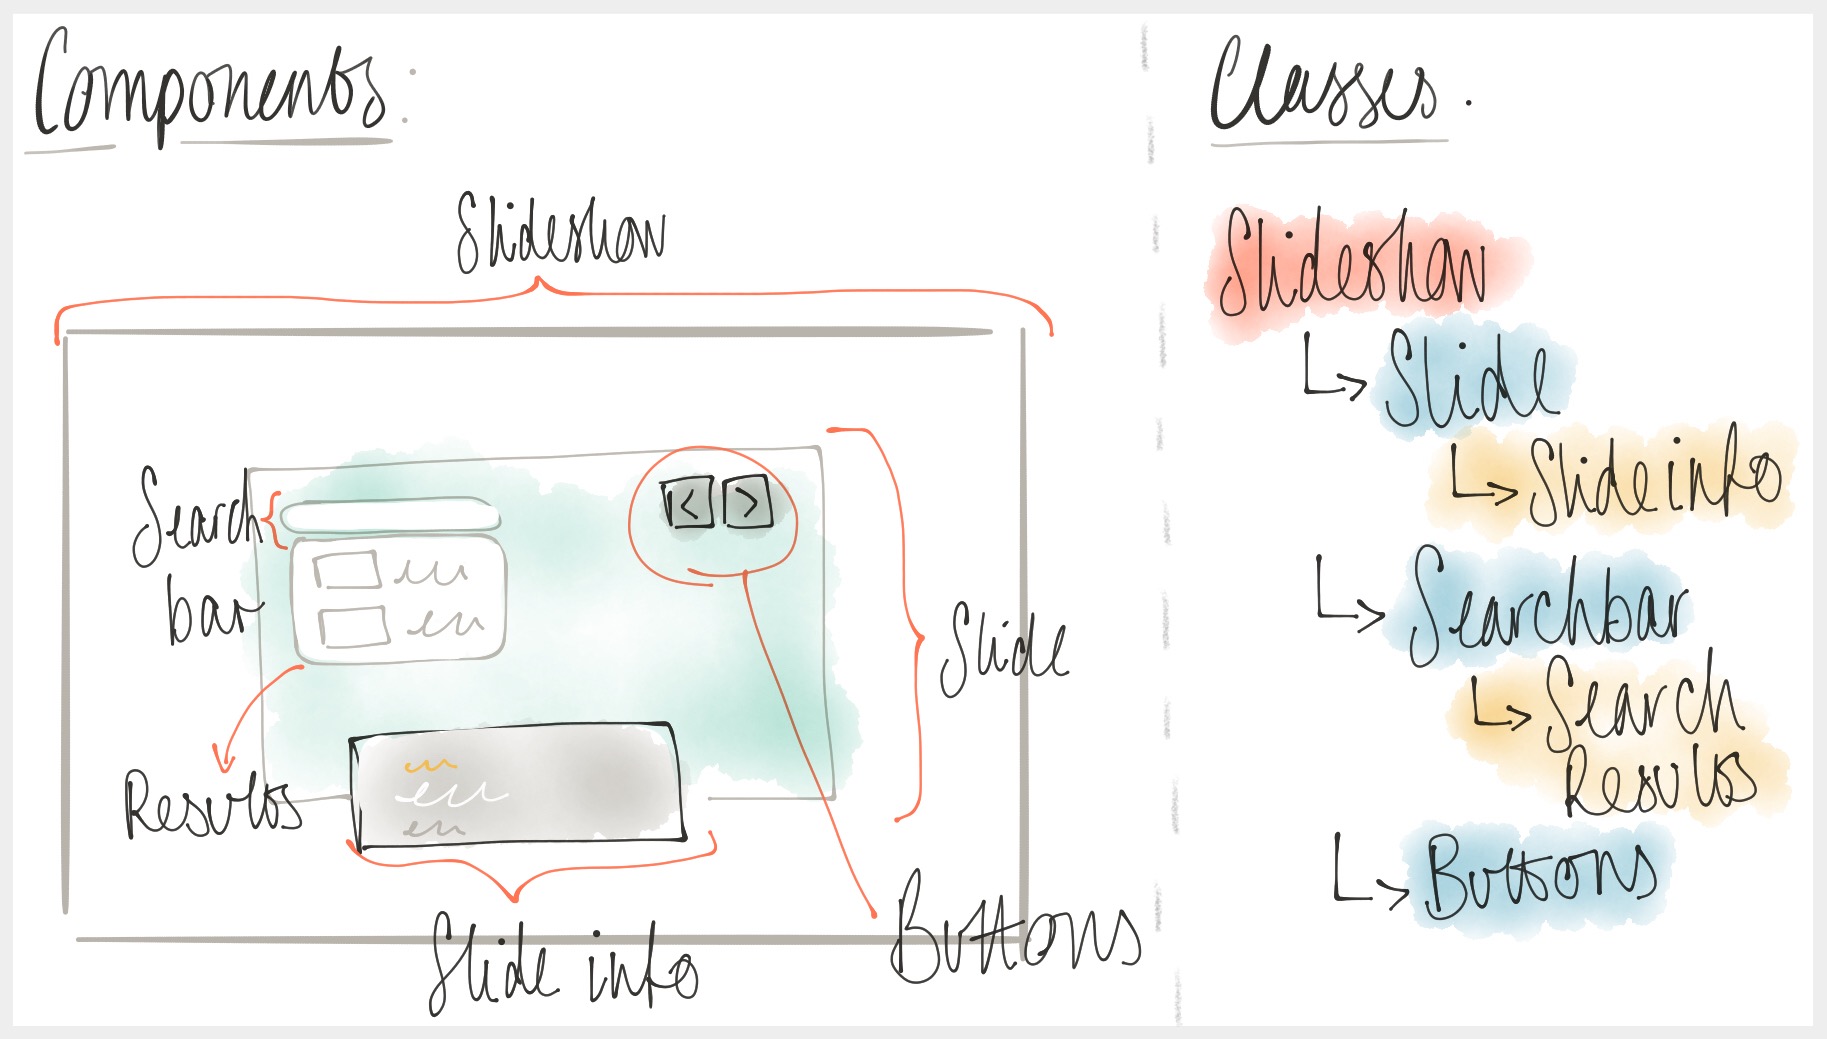 Components:
Slideshow
Search
bar
< >
Slide
Results
Slide info
Buttons
Classes.
Slideshow
Slide
Slide info
Searchbar
Search
Results
Buttons